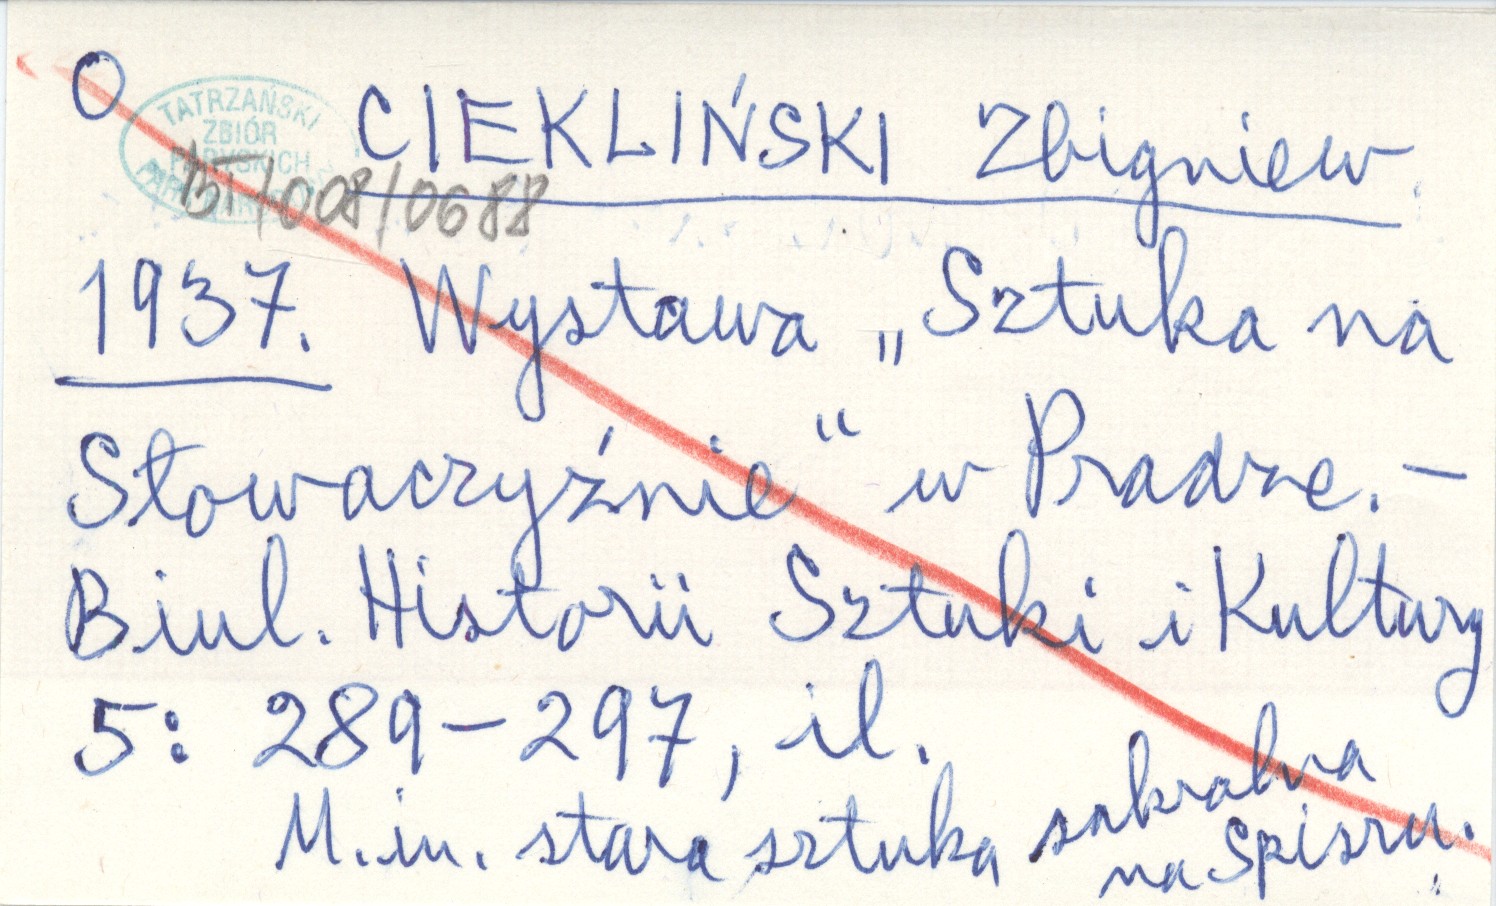 O
TATRZAŃSKI
ZBIÓR
PARYSKICH
CIEKLIŃSKI Zbigniew
/008/0688
1937. Wystawa „Sztuka na
Słowaczyźnie“ w Pradze. –
Biul. Historii Sztuki i Kultury
5: 289–297, il.
M.in. stara sztuka sakralna
na Spiszu.